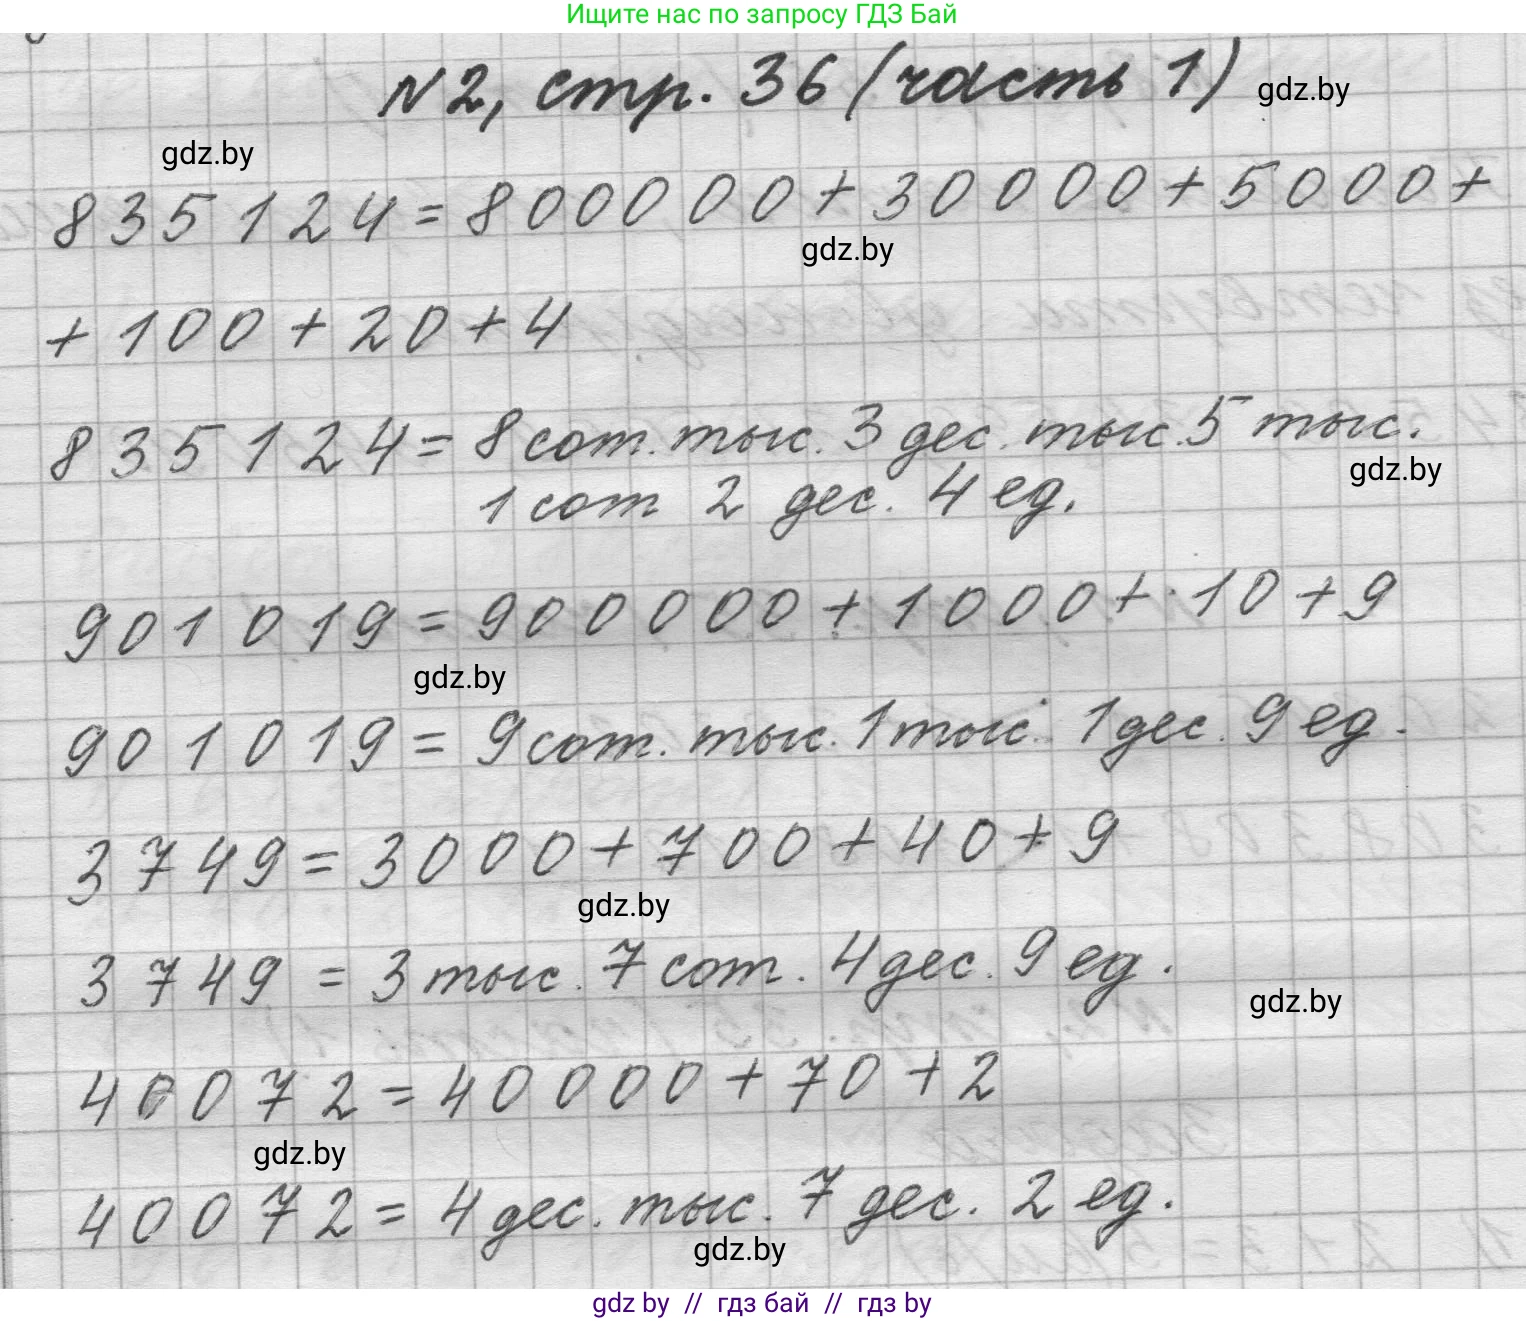 Ищите нас по запросу ГДЗ Бай
№2, стр. 36 (часть 1)
gdz.by
gdz.by
835 124 = 800 000 + 30 000 + 5000 +
gdz.by
+ 100 + 20 + 4
835 124 = 8 сот. тыс. 3 дес. тыс. 5 тыс.
gdz.by
1 сот 2 дес. 4 ед.
901 019 = 900 000 + 1000 + 10 + 9
gdz.by
901 019 = 9 сот. тыс. 1 тыс. 1 дес. 9 ед.
3749 = 3000 + 700 + 40 + 9
gdz.by
3749 = 3 тыс. 7 сот. 4 дес. 9 ед.
gdz.by
40072 = 40000 + 70 + 2
gdz.by
40072 = 4 дес. тыс. 7 дес. 2 ед.
gdz.by
gdz by // гдз бай // гдз by